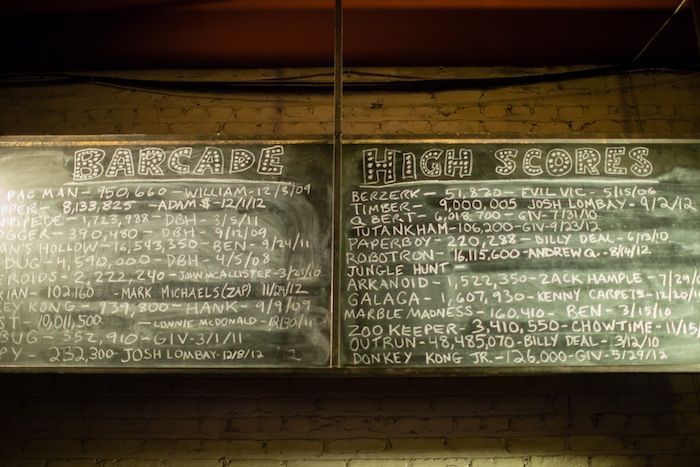 BARCADE
PAC MAN - 950,660 - WILLIAM - 12/3/09
PPER - 8,133,825 - ADAM $ - 12/1/12
1,723,938 - DBH - 3/5/11
GGER - 390,480 - DBH - 9/12/09
AN'S HOLLOW - 16,543,350 - BEN - 9/24/11
DUG - 4,590,000 - DBH - 4/5/08
ROIDS - 2,272,240 - JOHN MCALLISTER - 3/21/10
IAN - 102,160 - MARK MICHAELS (ZAP) 11/24/12
EY KONG - 939,800 - HANK - 9/9/09
ST - 10,011,500 - LONNIE MCDONALD - 12/30/11
BUG - 352,910 - GIV - 3/1/11
PY - 232,300 JOSH LOMBAY - 12/8/12
HIGH SCORES
BERZERK - 51,820 - EVIL VIC - 5/15/06
TIMBER - 9,000,005 JOSH LOMBAY - 9/2/12
Q BERT - 6,018,700 - GIV - 7/31/10
TUTANKHAM - 106,200 - GIV - 9/23/12
PAPERBOY - 270,288 - BILLY DEAL - 6/13/10
ROBOTRON - 16,115,600 - ANDREW Q. - 8/14/12
JUNGLE HUNT -
ARKANOID - 1,522,350 - ZACK HAMPLE - 7/29/
GALAGA - 1,607,930 - KENNY CARPETS - 12/20/
MARBLE MADNESS - 160,410 - BEN - 3/15/10
ZOO KEEPER - 3,410,550 - CHOWTIME - 11/15/
OUTRUN - 48,485,070 - BILLY DEAL - 3/12/10
DONKEY KONG JR. - 126,000 - GIV - 5/29/12